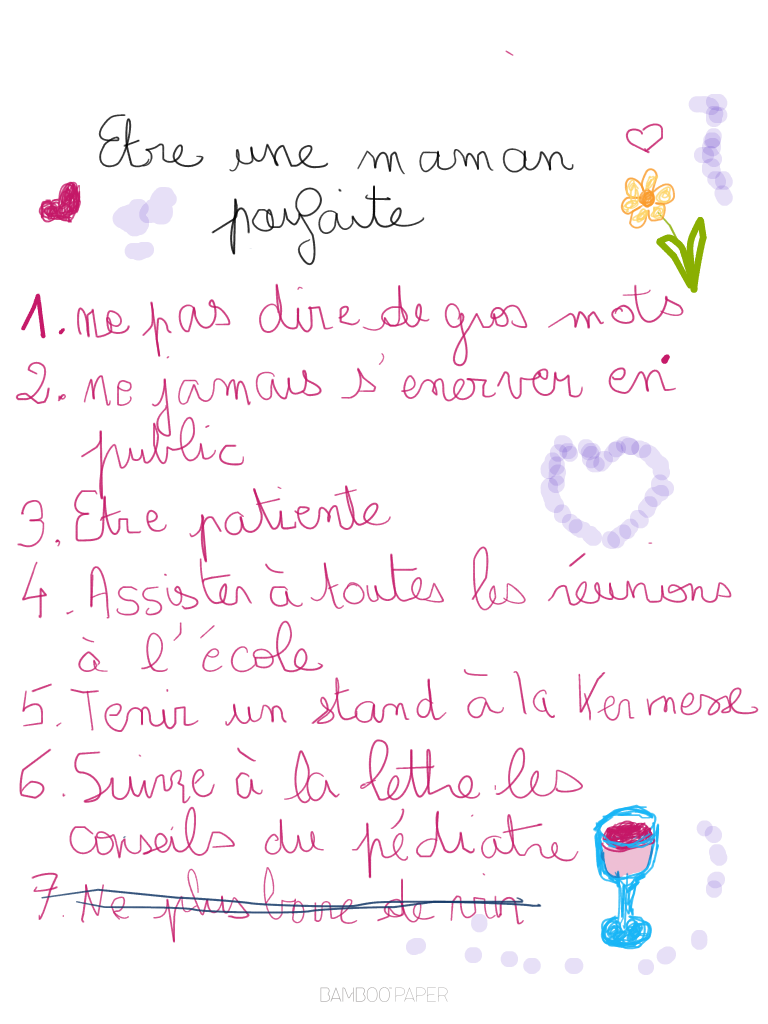 Etre une maman
parfaite
1. ne pas dire de gros mots
2. ne jamais s'enerver en
public
3. Etre patiente
4. Assister à toutes les réunions
à l'école
5. Tenir un stand à la Kermesse
6. Suivre à la lettre les
conseils du pédiatre
7. Ne plus boire de vin
BAMBOO PAPER